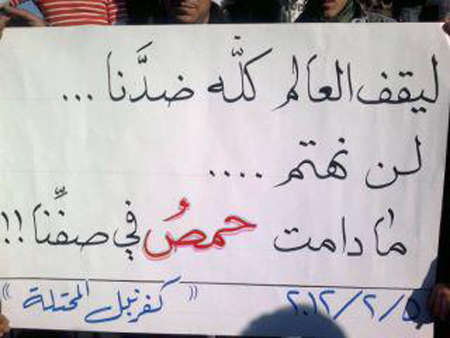 ليقف العالم كلّه ضدَّنا ...
لن نهتم ....
مادامت حمصُ في صفِّنا !!
٢٠١٢/٢/٥ " كفرنبل المحتلة "